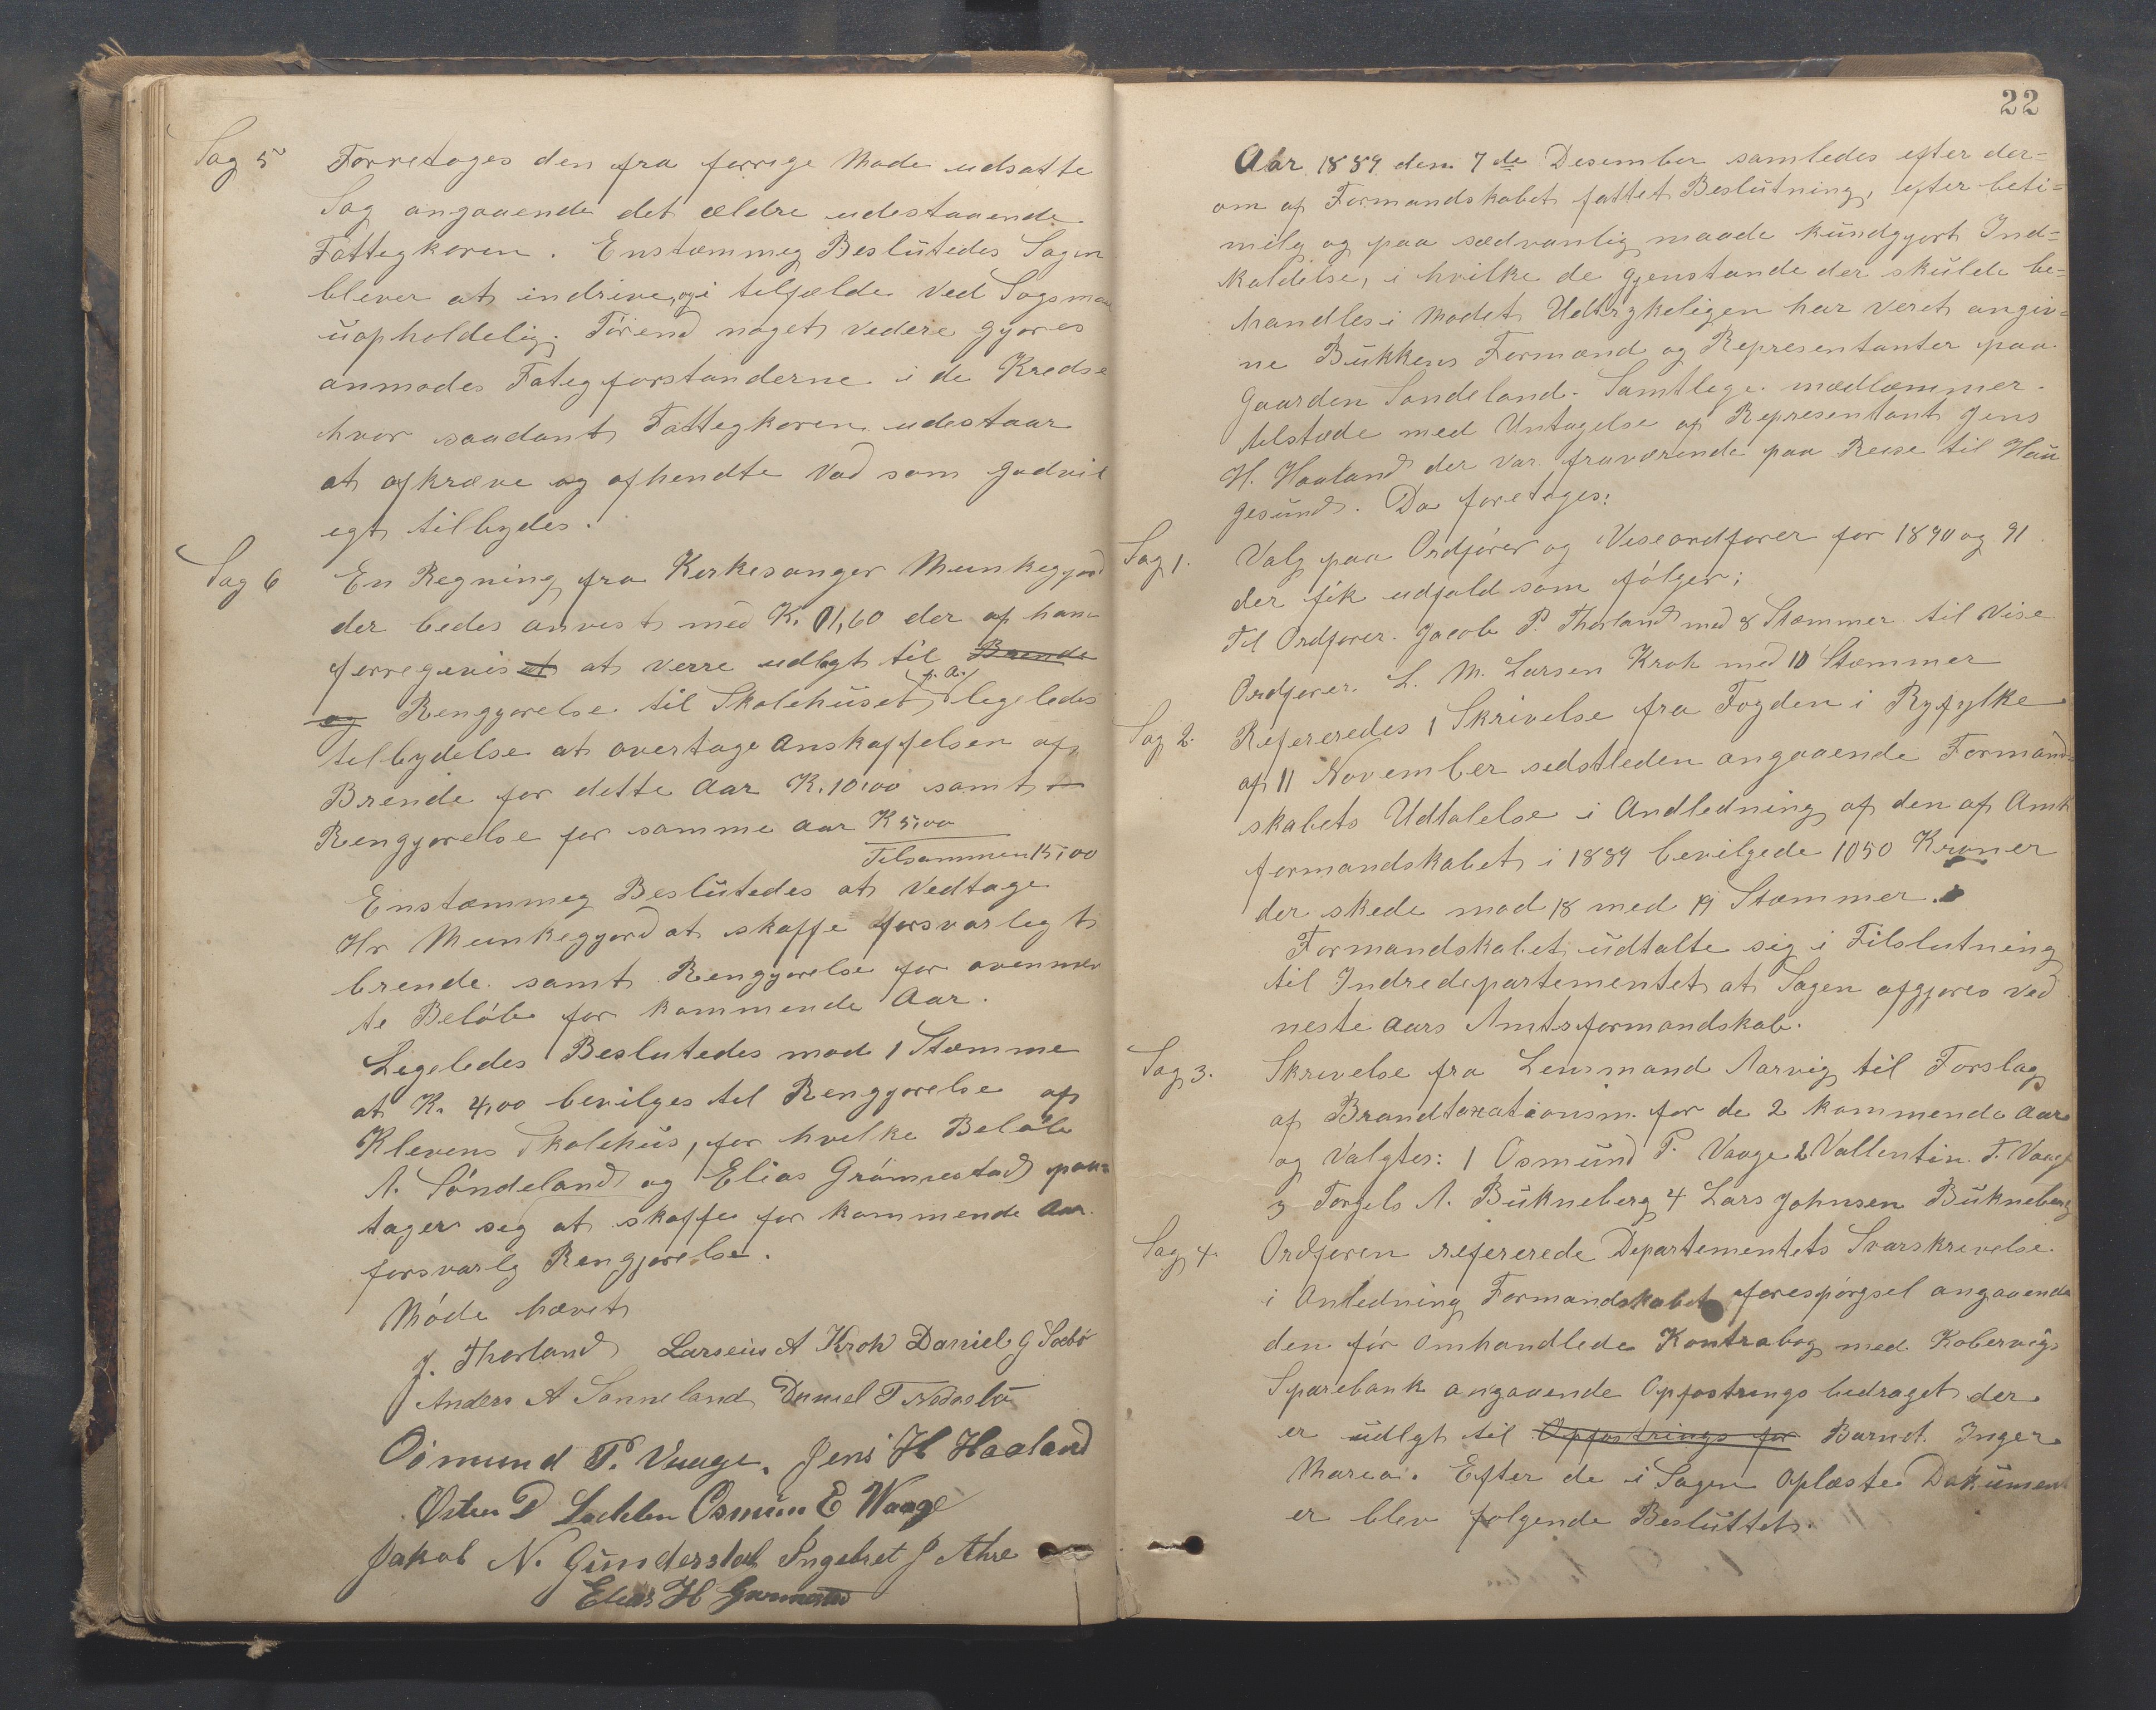 Sag 5 Forretoges den fra forrige Mode udsatte
Sag angaaende det ældre udestaaende
Fattegkoren. Enstæmmeg Beslutedes Sagen
blever at indrive, og i telfælde ved Sagsmaa
uopholdelig. Førend noget vedere gjøres
anmodes Fategforstanderne i de Kredse
hvor saadant Fattegkoren udestaar
at afkræve og afhendte Vad som godvil
egt tilbydes.
Sag 6 En Regning fra Kerkesanger Munkegjord
der bedes anvist med K. 01,60 der af ham
forregives at at verre udlagt til Brende
p. A.
og Rengjorelse til Skolehuset, legeledes
telbydelse at overtage Anskaffelsen af
Brende for dette Aar K. 10,00 samt
Rengjorelse for samme aar K 5,00
Telsammen 15,00
Enstæmmeg Beslutedes at Vedtage
Hr Munkegjord at skaffe forsvarlegt
brende samt Rengjorelse for ovenmel
te Beløb for kommende Aar.
Legeledes Beslutedes mod 1 Stæmme
at K. 4,00 bevilges tel Rengjorelse af
Klevens Skolehus, for hvelke Beløb
A. Søndeland og Elias Grønnestad paa=
tager seg at skaffe for kommende Aar
forsvarlg Rengjørelse.
Møde hævet
J. Thorland Larseus A Krok Daniel G Sæbø
Anders A Sonneland Daniel T
Osmund P. Vaage. Jens H Haaland
Østen D Lodden Osmun E Waage
Jakob N. Gunderstad Ingebret J Ahre
Elias H Grønnestad
22
Aar 1889 den 7de Desember samledes efter der=
om af Formandskabet fattet Beslutning, efter beti=
milg og paa sædvanlig maade kundgjort Ind=
kaldelse, i hvilke de Gjenstande der skulde be=
handles i Modet Udtrykeligen har veret angiv=
ne Bukkens Formænd og Representanter paa
Gaarden Sandeland. Samtlege medlæmmer
telstæde med Untagelse af Representant Jens
H. Haaland der var fraværende paa Reise til Hau
gesund. Da foretoges:
Sag 1. Valg paa Ordfører og Viseordforer for 1890 og 91
der fik udfald som følger;
Tel Ordforer. Jacob P. Thorland med 8 Stæmmer til Vise
Ordforer. L. M. Larsen Krok med 10 Stæmmer
Sag 2. Refereredes 1 Skrivelse fra Fogden i Ryfylke
af 11 November sedstleden angaaende Formand=
skabets Udtalelse i Andledning af den af Amts
formandskabet i 1889 bevilgede 1050 Kroner
der skede mod 18 med 19 Stæmmer.
Formandskabet udtalte sig i Tilslutning
til Indredepartementet at Sagen afgjøres ved
neste Aars Amtsformandskab.
Sag 3. Skrivelse fra Lensmand Narvig til Forslag
af Brandtaxationsm. for de 2 kommende Aar
og Valgtes: 1 Osmund P. Vaage 2 Vallentin T. Vaage
3 Torgels A. Bukneberg 4 Lars Johnsen Bukneberg
Sag 4. Ordføren refererede Departementets Svarskrivelse
i Anledning Formandskabet forespørgsel angaaende
den før Omhandlede Kontrabog med Kobervigs
Sparebank angaaende Opfostrings bedraget der
er udlgt til Opfostrings for Barnet Inger
Maria. Efter de i Sagen Oplæste Dokumen
er blev følgende Besluttet.